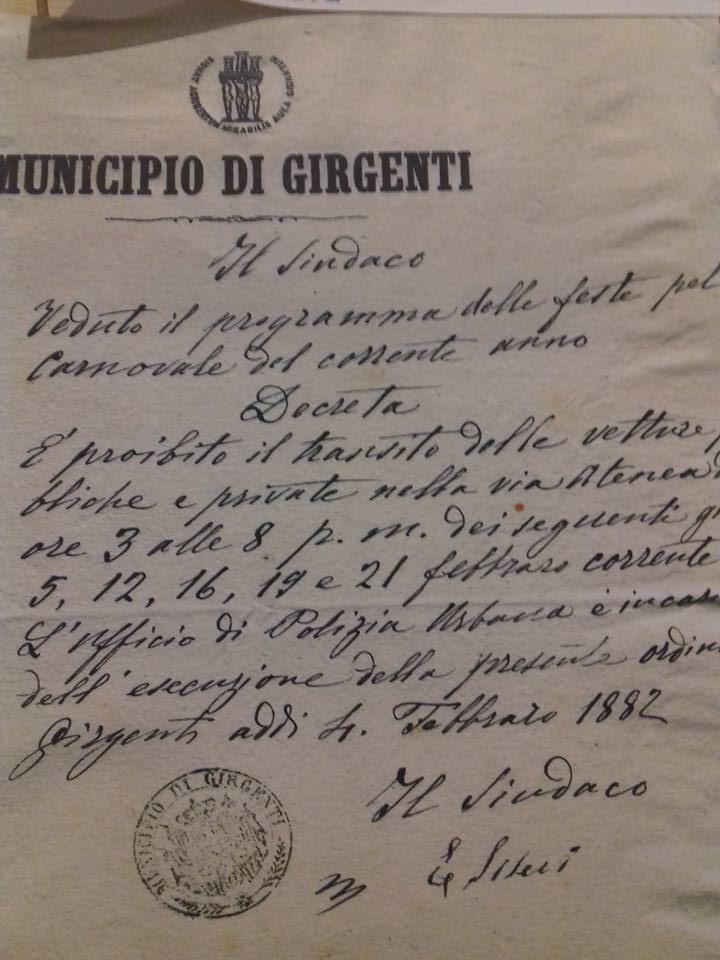 SIGNAT AGRIGENTUM MIRABILIS AULA GIGANTUM
MUNICIPIO DI GIRGENTI
Il Sindaco
Veduto il programma delle feste pel
Carnovale del corrente anno
Decreta
E' proibito il transito delle vetture p
bliche e private nella via Atenea d
ore 3 alle 8 p. m. dei seguenti g
5, 12, 16, 19 e 21 febbraro corrente
L'Ufficio di Polizia Urbana è incar
dell'esecuzione della presente ordin
Girgenti addì 4. Febbraro 1882
Il Sindaco
MUNICIPIO DI GIRGENTI